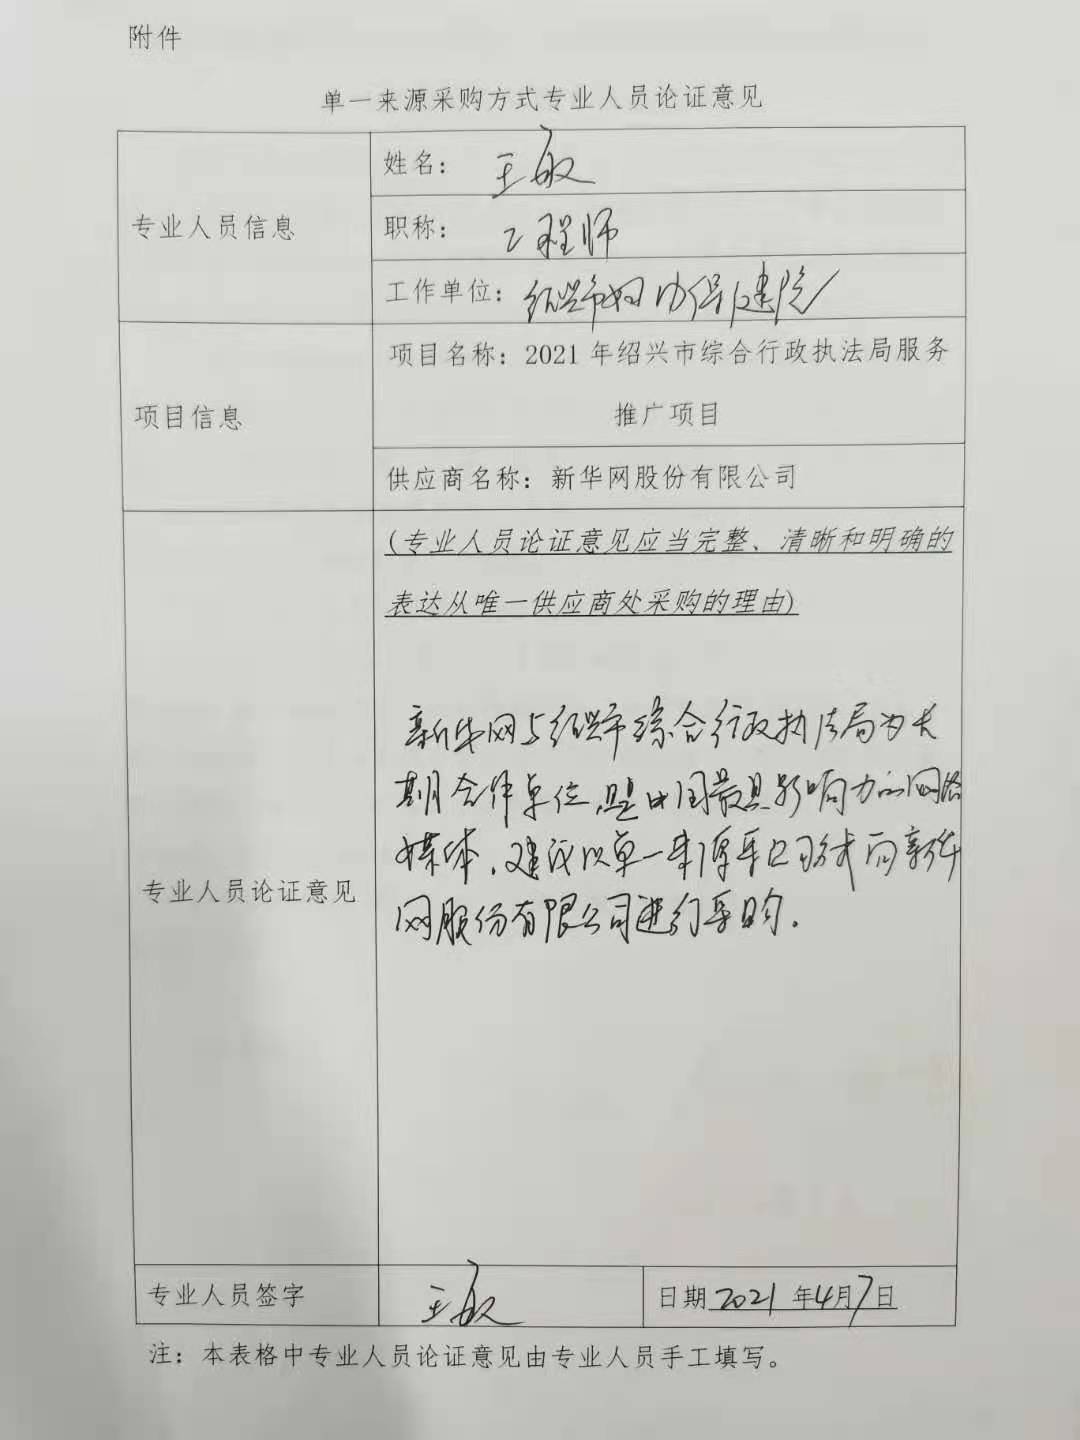 附件
单一来源采购方式专业人员论证意见
专业人员信息
姓名：王敏
职称：工程师
工作单位：绍兴市妇幼保健院
项目信息
项目名称：2021年绍兴市综合行政执法局服务
推广项目
供应商名称：新华网股份有限公司
专业人员论证意见
(专业人员论证意见应当完整、清晰和明确的
表达从唯一供应商处采购的理由)
新华网与绍兴市综合行政执法局为长
期合作单位，是中国最具影响力的网络
媒体，建议以单一来源采购方式向新华
网股份有限公司进行采购。
专业人员签字
王敏
日期2021年4月7日
注：本表格中专业人员论证意见由专业人员手工填写。